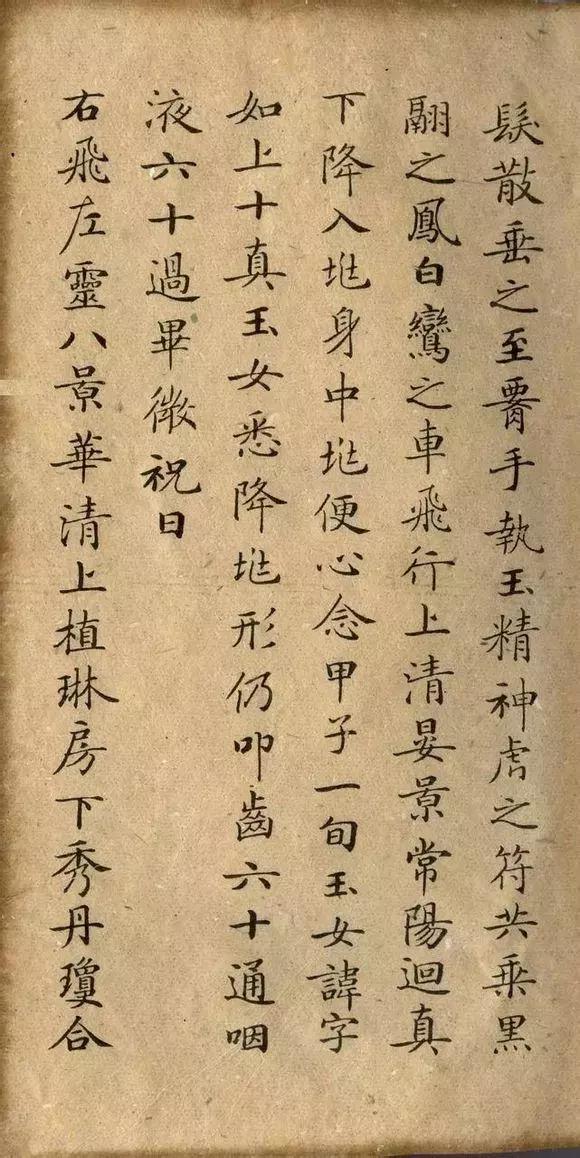 髮散垂之至署手執玉精神虎之符共乗黒
翮之鳳白鸞之車飛行上清晏景常陽迴真
下降入𡉏身中𡉏便心念甲子一旬玉女諱字
如上十真玉女悉降𡉏形仍叩齒六十通咽
液六十過畢微祝曰
右飛左靈八景華清上植琳房下秀丹瓊合